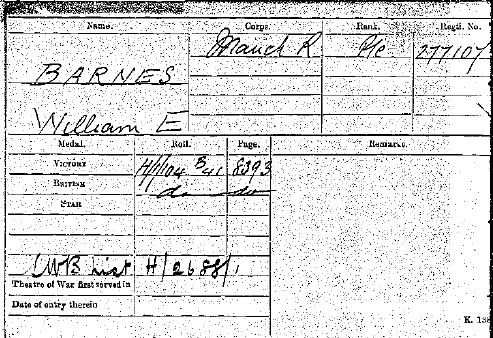 Name. Corps. Rank. Regtl. No.
Manch R Pte 277107
BARNES
William E
Medal. Roll. Page. Remarks.
VICTORY H/1/104 B41 8393
BRITISH do do
STAR
LWB List H/2688/1
Theatre of War first served in
Date of entry therein
K. 138